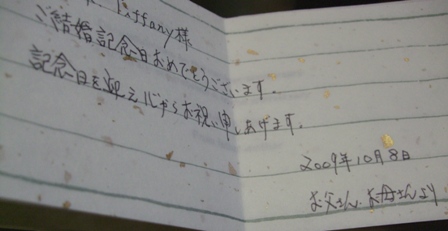 Tiffany様
ご結婚記念日おめでとうございます。
記念日を迎え心からお祝い申しあげます。
2009年10月8日
お父さん、お母さんより